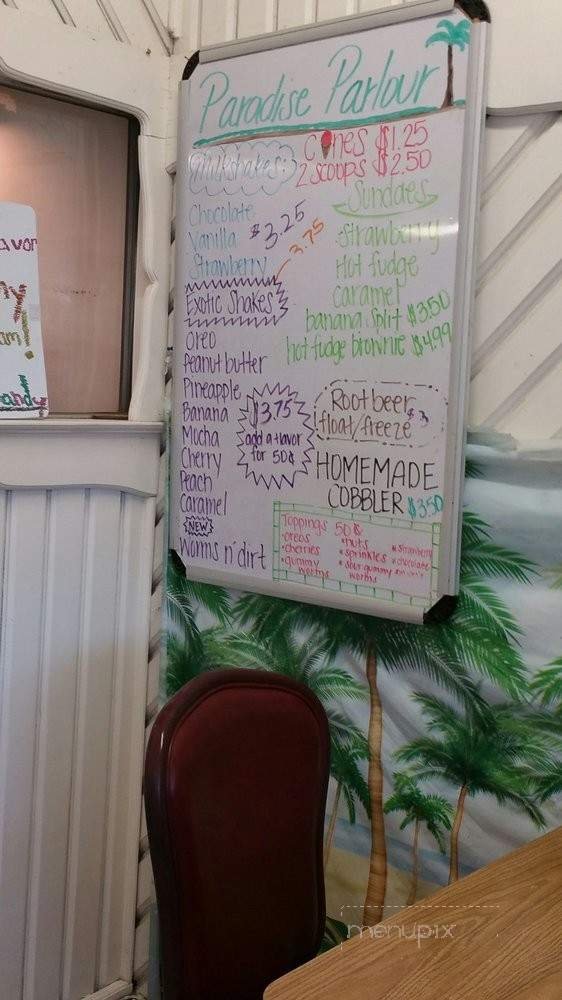 Paradise Parlour
Milkshakes:
Chocolate
Vanilla $3.25
Strawberry
3.75
Exotic Shakes
Oreo
Peanut butter
Pineapple
Banana
Mocha
Cherry
Peach
Caramel
NEW
Worms n' dirt
$3.75
add a flavor
for 50¢
Cones $1.25
2 scoops $2.50
Sundaes
Strawberry
Hot fudge
caramel
banana split $3.50
hot fudge brownie $4.99
Root beer $3
float/freeze
HOMEMADE
COBBLER $3.50
Toppings 50¢
•oreos
•cherries
•gummy
worms
•nuts
•sprinkles
•sour gummy
worms
•strawberry
•chocolate
avor
y
am!
andy
menupix